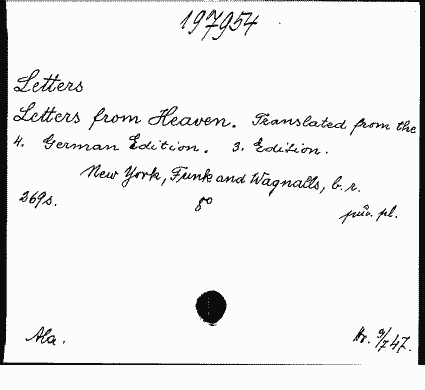 197954
Letters
Letters from Heaven. Translated from the
4. German Edition. 3. Edition.
New York, Funk and Wagnalls, b. r.
269s. 8° pův. pl.
Ala. 9/7 47.